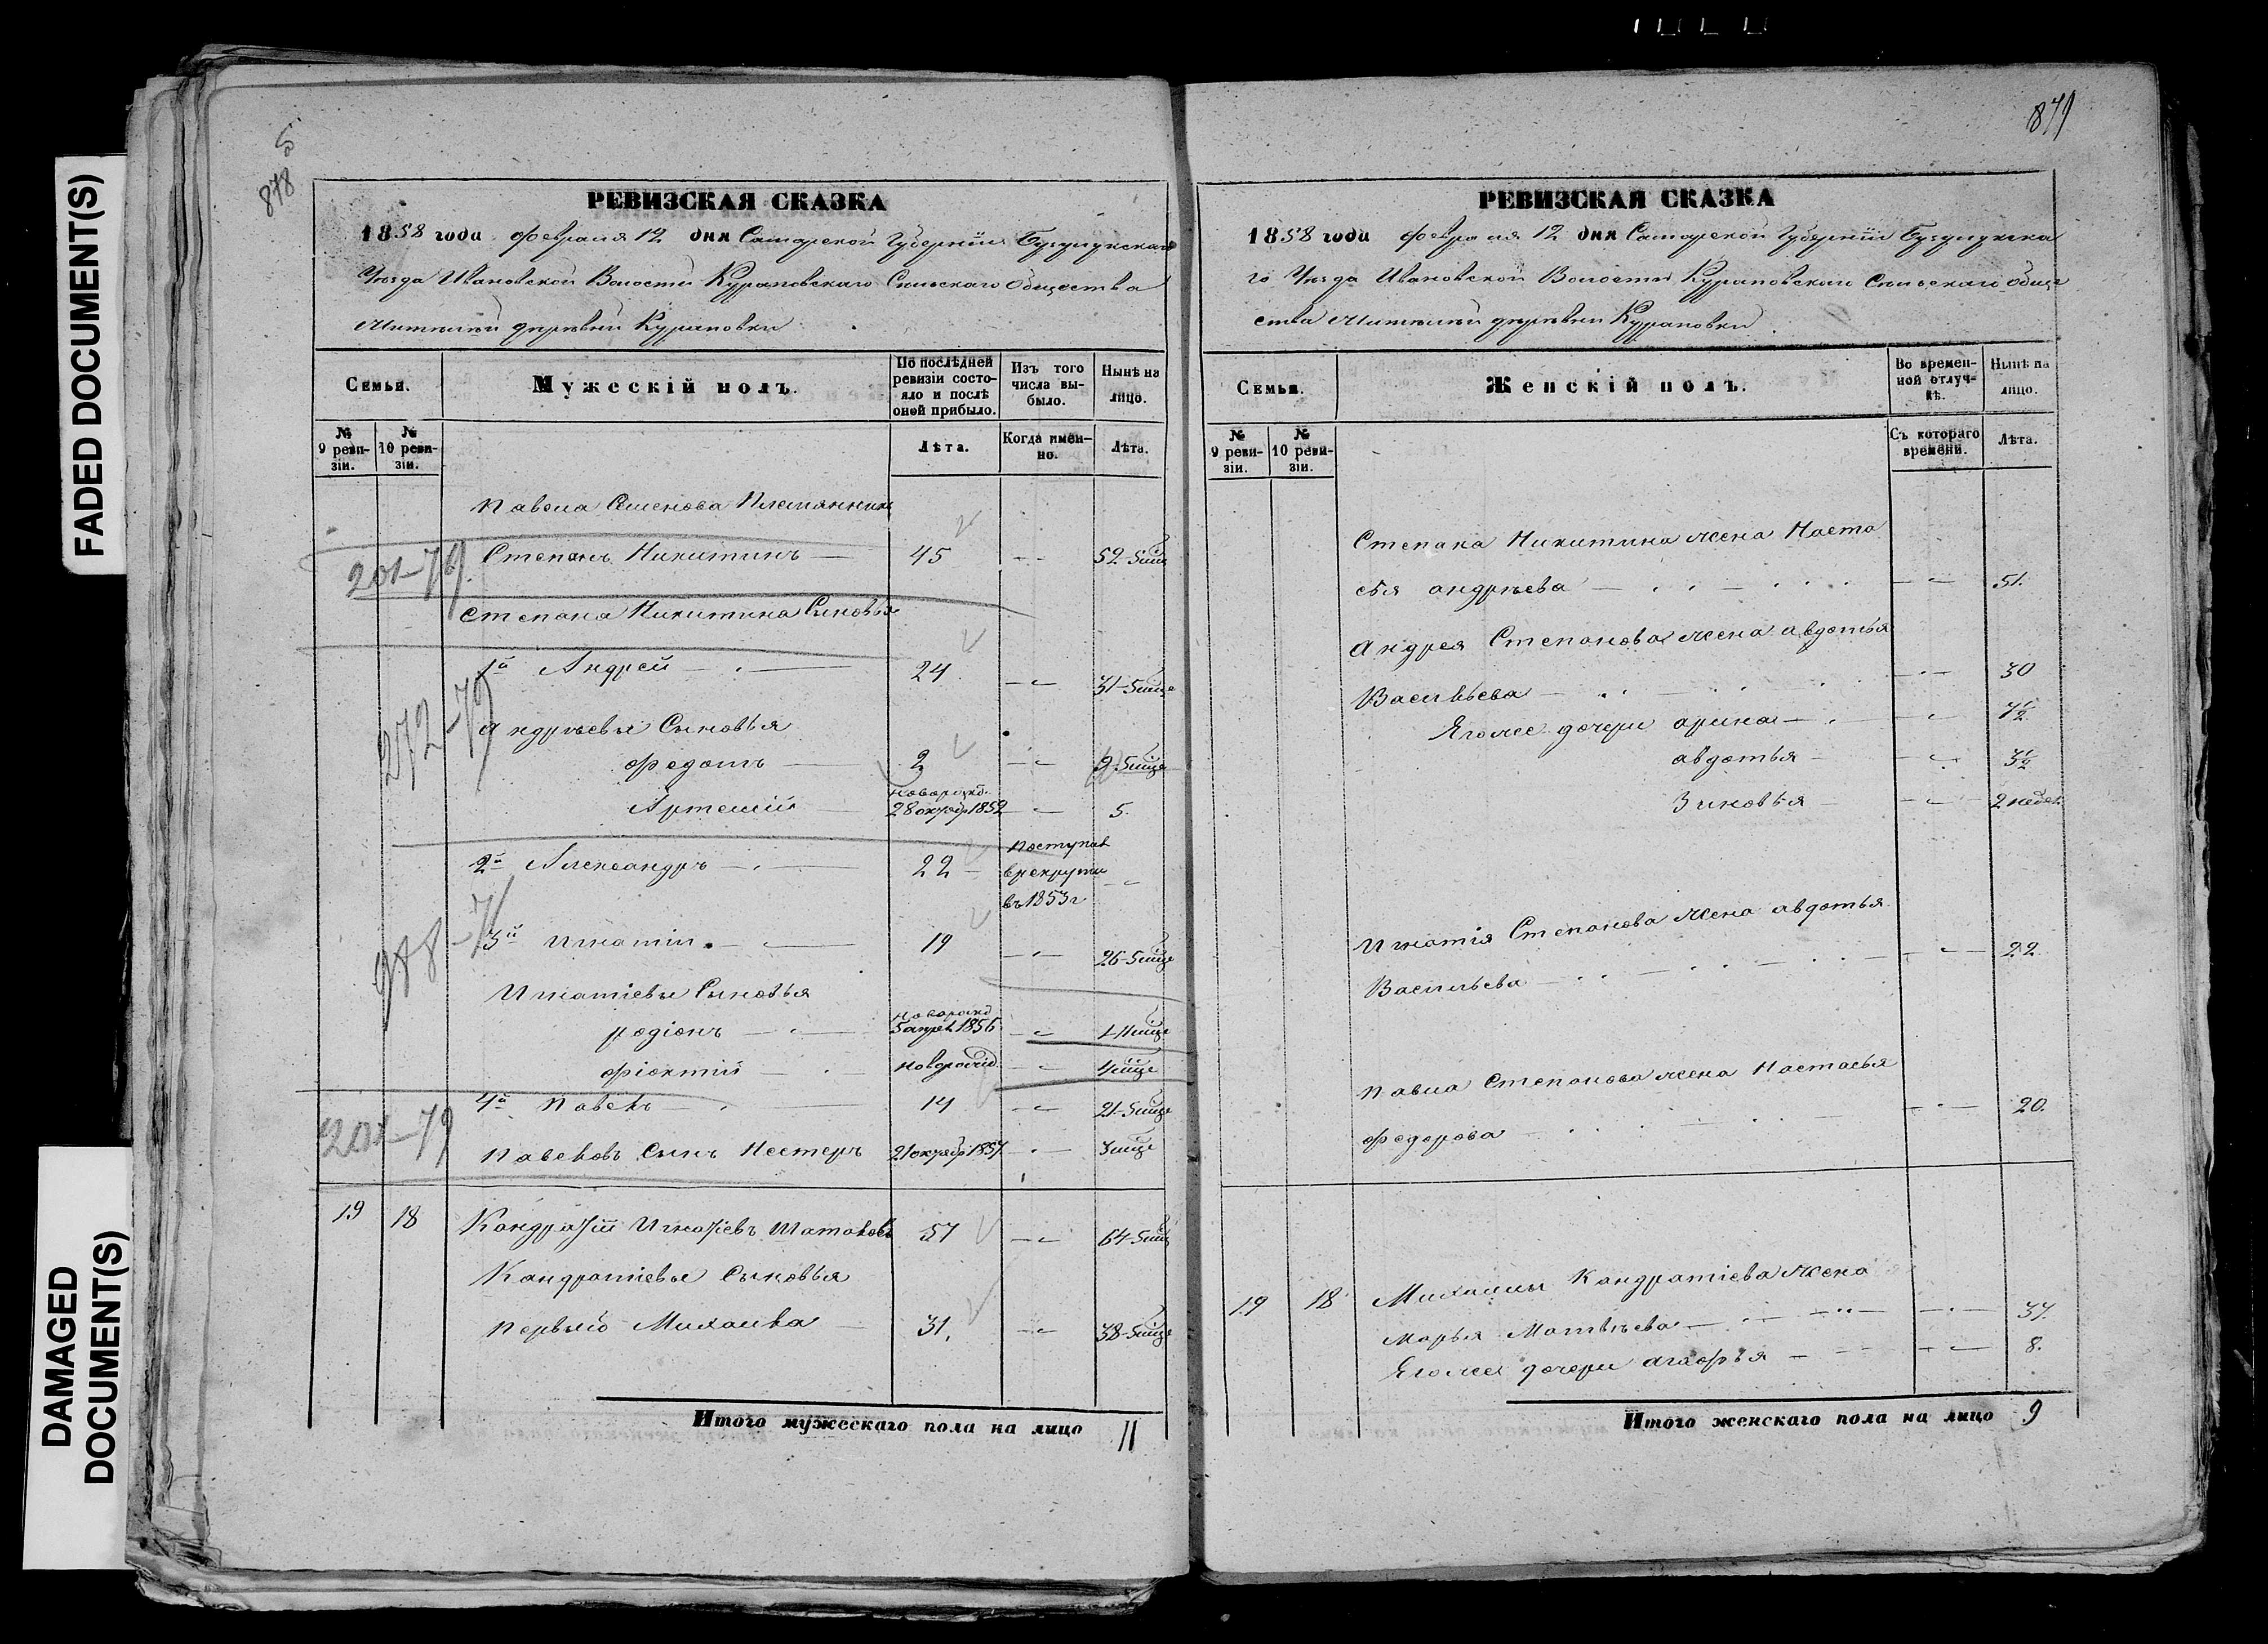 FADED DOCUMENT(S)
DAMAGED
DOCUMENT(S)
878 об
РЕВИЗСКАЯ СКАЗКА
1858 года февраля 12 дня Самарской Губернии Бузулукскаго
Уезда Ивановской Волости Кураповскаго Сельскаго Общества
деревни Кураповки
Семьи.
Мужескій полъ.
По послѣдней ревизіи состояло и послѣ оной прибыло.
Изъ того числа выбыло.
Нынѣ на лицо.
№ 9 ревизіи.
№ 10 ревизіи.
Лѣта.
Когда именно.
Лѣта.
Павела Семенова Племянникъ
201-79 Степанъ Никитинъ 45 52
Степана Никитина Сыновья
1й Андрей 24 31
272-79
Андрѣевы Сыновья
Федотъ 2 9
новорожд.
Артемій 28 октяб 1852 5.
2й Александръ 22 поступил в рекруты въ 1853 г
3й Игнатій 19 26
Игнатіевы Сыновья
новорожд
родіонъ 5 апрел 1856
новорожд
4й Павелъ 14 21
Павеловъ Сынъ Нестеръ 21 октяб 1857
19 18 Кандратій Игнатіевъ Шатоловъ 57 64
Кандратіевы Сыновья
первый Михайла 31. 38
Итого мужескаго пола на лицо 11
879
РЕВИЗСКАЯ СКАЗКА
1858 года февраля 12 дня Самарской Губерніи Бузулукска
го Уезда Ивановской Волости Кураповскаго Сельскаго Обще
ства деревни Кураповки
Семьи.
Женскій полъ.
Во временной отлучкѣ.
Нынѣ на лицо.
№ 9 ревизіи.
№ 10 ревизіи.
Съ котораго времени.
Лѣта.
Степана Никитина жена Наста
сья андрѣева 51.
Андрея Степанова жена авдотья
Васильева 30
Его же дочери арина 7½
авдотья 3½
Зиновья 2 недел.
Игнатія Степанова жена авдотья
Васильева 22
Павла Степанова жена Настасья
федорова 20.
19 18 Михайлы Кандратіева жена
Марья Матвѣева 37.
Его же дочери агафья 8.
Итого женскаго пола на лицо 9